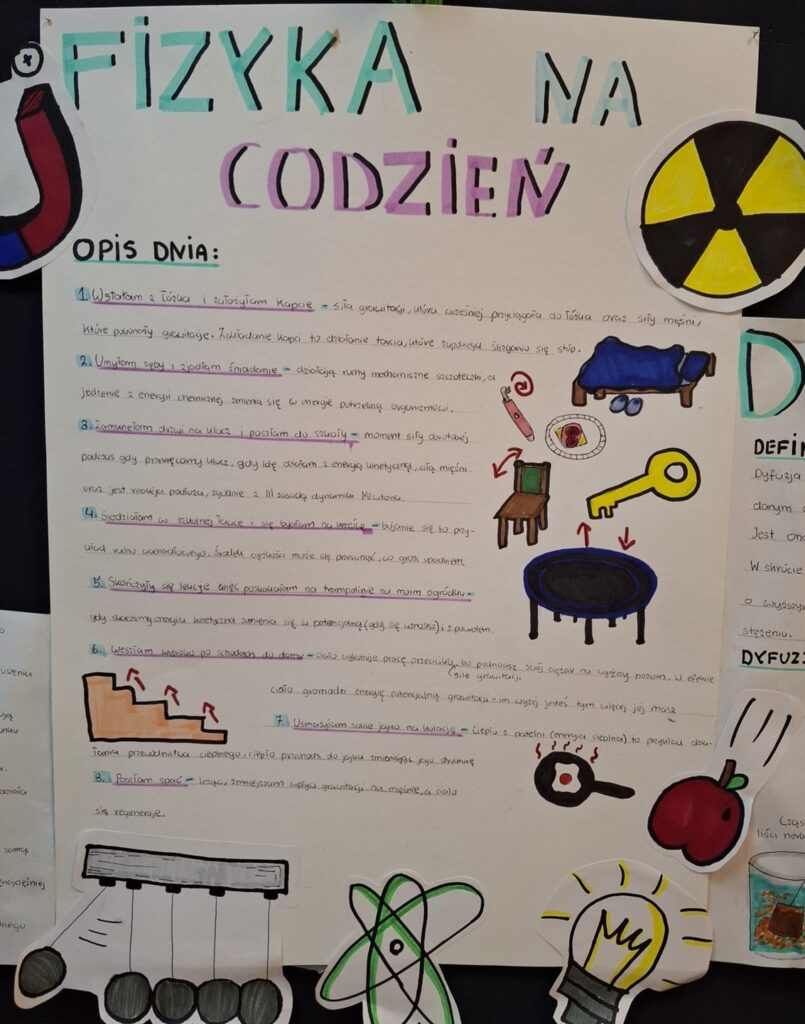 FIZYKA NA
CODZIEŃ
OPIS DNIA:
1. Wstałam z łóżka i założyłam kapcie – siła grawitacji, która wcześniej przyciągała do łóżka oraz siły mięśni,
które pokonały grawitację. Zakładanie kapci to działanie tarcia, które zapobiega ślizganiu się stóp.
2. Umyłam zęby i zjadłam śniadanie – działają ruchy mechaniczne szczoteczki, a
jedzenie z energii chemicznej zmienia się w energię potrzebną organizmowi.
3. Zamknęłam drzwi na klucz i poszłam do szkoły – moment siły
podczas gdy przekręcamy klucz, gdy idę działam z energią kinetyczną, siłą mięśni
oraz jest reakcja podłoża, zgodnie z III zasadą dynamiki Newtona.
4. Siedziałam w szkolnej ławce i się bujałam na krześle – bujanie się to przy-
kład ruchu wahadłowego. Środek ciężkości może się przesunąć, co grozi upadkiem.
5. Skończyły się lekcje więc poskakałam na trampolinie na moim ogródku –
gdy skaczemy energia kinetyczna zmienia się w potencjalną (gdy się wznosisz) i z powrotem.
6. Weszłam wysoko po schodach do domu – ciało wykonuje pracę przeciwko sile grawitacji, bo podnosisz swój ciężar na wyższy poziom. W efekcie
ciało gromadzi energię potencjalną grawitacji – im wyżej jesteś tym więcej jej masz
7. Usmażyłam sobie jajko na kolację – Ciepło z patelni (energia cieplna) to przykład dzia-
łania przewodnictwa cieplnego, ciepło przenosi do jajka zmieniając jego strukturę
8. Poszłam spać – leżąc, zmniejszam wpływ grawitacji na mięśnie, a ciało
się regeneruje.
D
DEFIN
Dyfuzja
danym
Jest
W skrócie
o wyższym
stężeniu.
DYFUZJ
liści